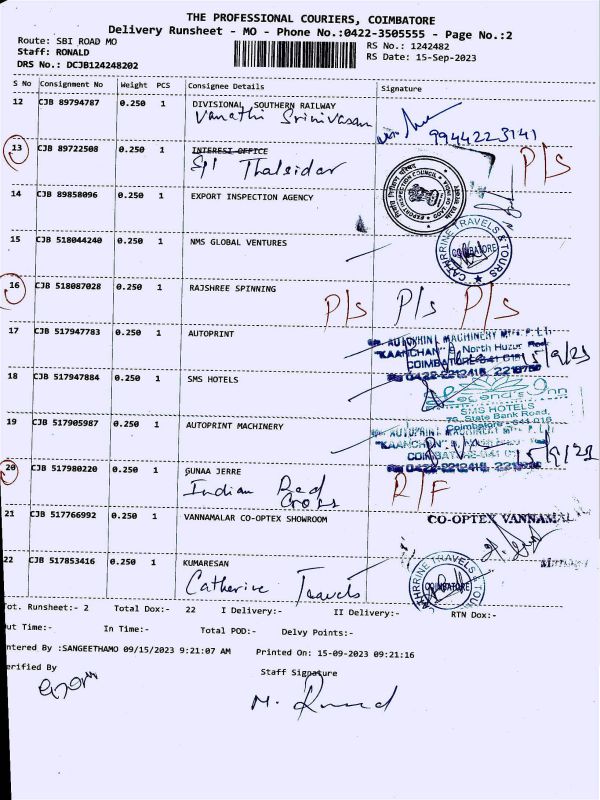 THE PROFESSIONAL COURIERS, COIMBATORE
Delivery Runsheet - MO - Phone No.:0422-3505555 - Page No.:2
Route: SBI ROAD MO
Staff: RONALD
DRS No.: DCJB124248202
RS No.: 1242482
RS Date: 15-Sep-2023
S No Consignment No Weight PCS Consignee Details Signature
12 CJB 89794787 0.250 1 DIVISIONAL SOUTHERN RAILWAY
Vanathi Srinivasan
9944223141
13 CJB 89722508 0.250 1 INTEREST OFFICE P/s
Spl Thalsidar
14 CJB 89858096 0.250 1 EXPORT INSPECTION AGENCY
EXPORT INSPECTION COUNCIL
15 CJB 518044240 0.250 1 NMS GLOBAL VENTURES
CATHRRINE TRAVELS & TOURS
COIMBATORE
16 CJB 518087028 0.250 1 RAJSHREE SPINNING
P/s P/s P/s
17 CJB 517947783 0.250 1 AUTOPRINT
AUTOPRINT MACHINERY
"KAANCHAN" 9, North Huzur Road
COIMBATORE-641 018
0422-2212416
15/9/23
18 CJB 517947884 0.250 1 SMS HOTELS
SMS HOTELS
State Bank Road,
Coimbatore - 641 018
19 CJB 517905987 0.250 1 AUTOPRINT MACHINERY
AUTOPRINT MACHINERY
"KAANCHAN"
COIMBATORE-641
0422-2212416
15/9/23
20 CJB 517980220 0.250 1 GUNAA JERRE R/F
Indian Red
Cross
21 CJB 517766992 0.250 1 VANNAMALAR CO-OPTEX SHOWROOM
CO-OPTEX VANNAMAL
22 CJB 517853416 0.250 1 KUMARESAN
Catherine Travels
TRAVELS &
COIMBATORE
Tot. Runsheet:- 2 Total Dox:- 22 I Delivery:- II Delivery:- RTN Dox:-
ut Time:- In Time:- Total POD:- Delvy Points:-
ntered By :SANGEETHAMO 09/15/2023 9:21:07 AM Printed On: 15-09-2023 09:21:16
erified By Staff Signature